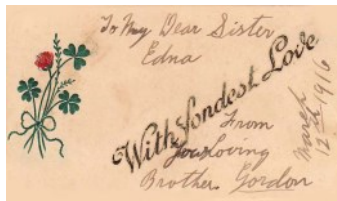 To My Dear Sister
Edna
With Fondest Love
From
Your Loving
Brother Gordon
March
12th 1916